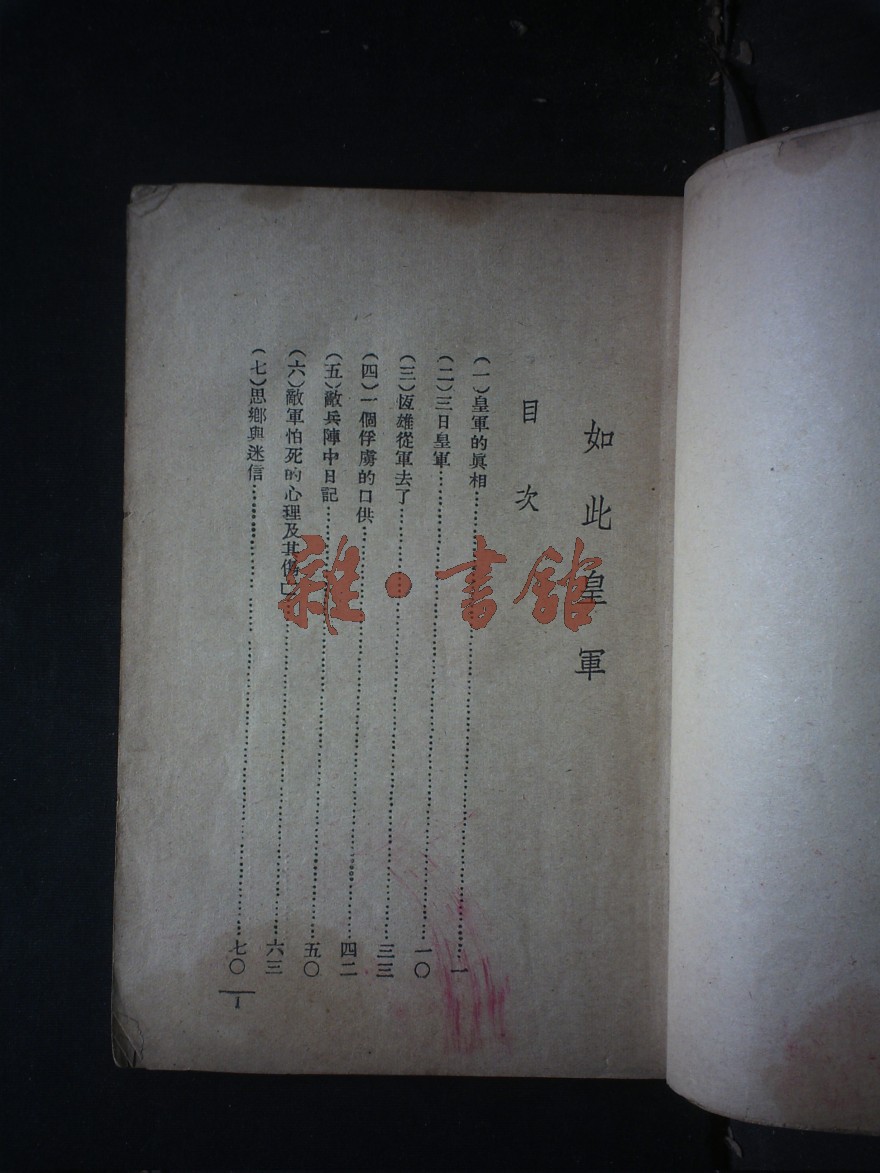 如此皇軍
目次
(一)皇軍的眞相……一
(二)三日皇軍……一〇
(三)恆雄從軍去了……三三
(四)一個俘虜的口供……四二
(五)敵兵陣中日記……五〇
(六)敵軍怕死的心理及其傷亡……六三
(七)思鄉與迷信……七〇
1
雜·書館